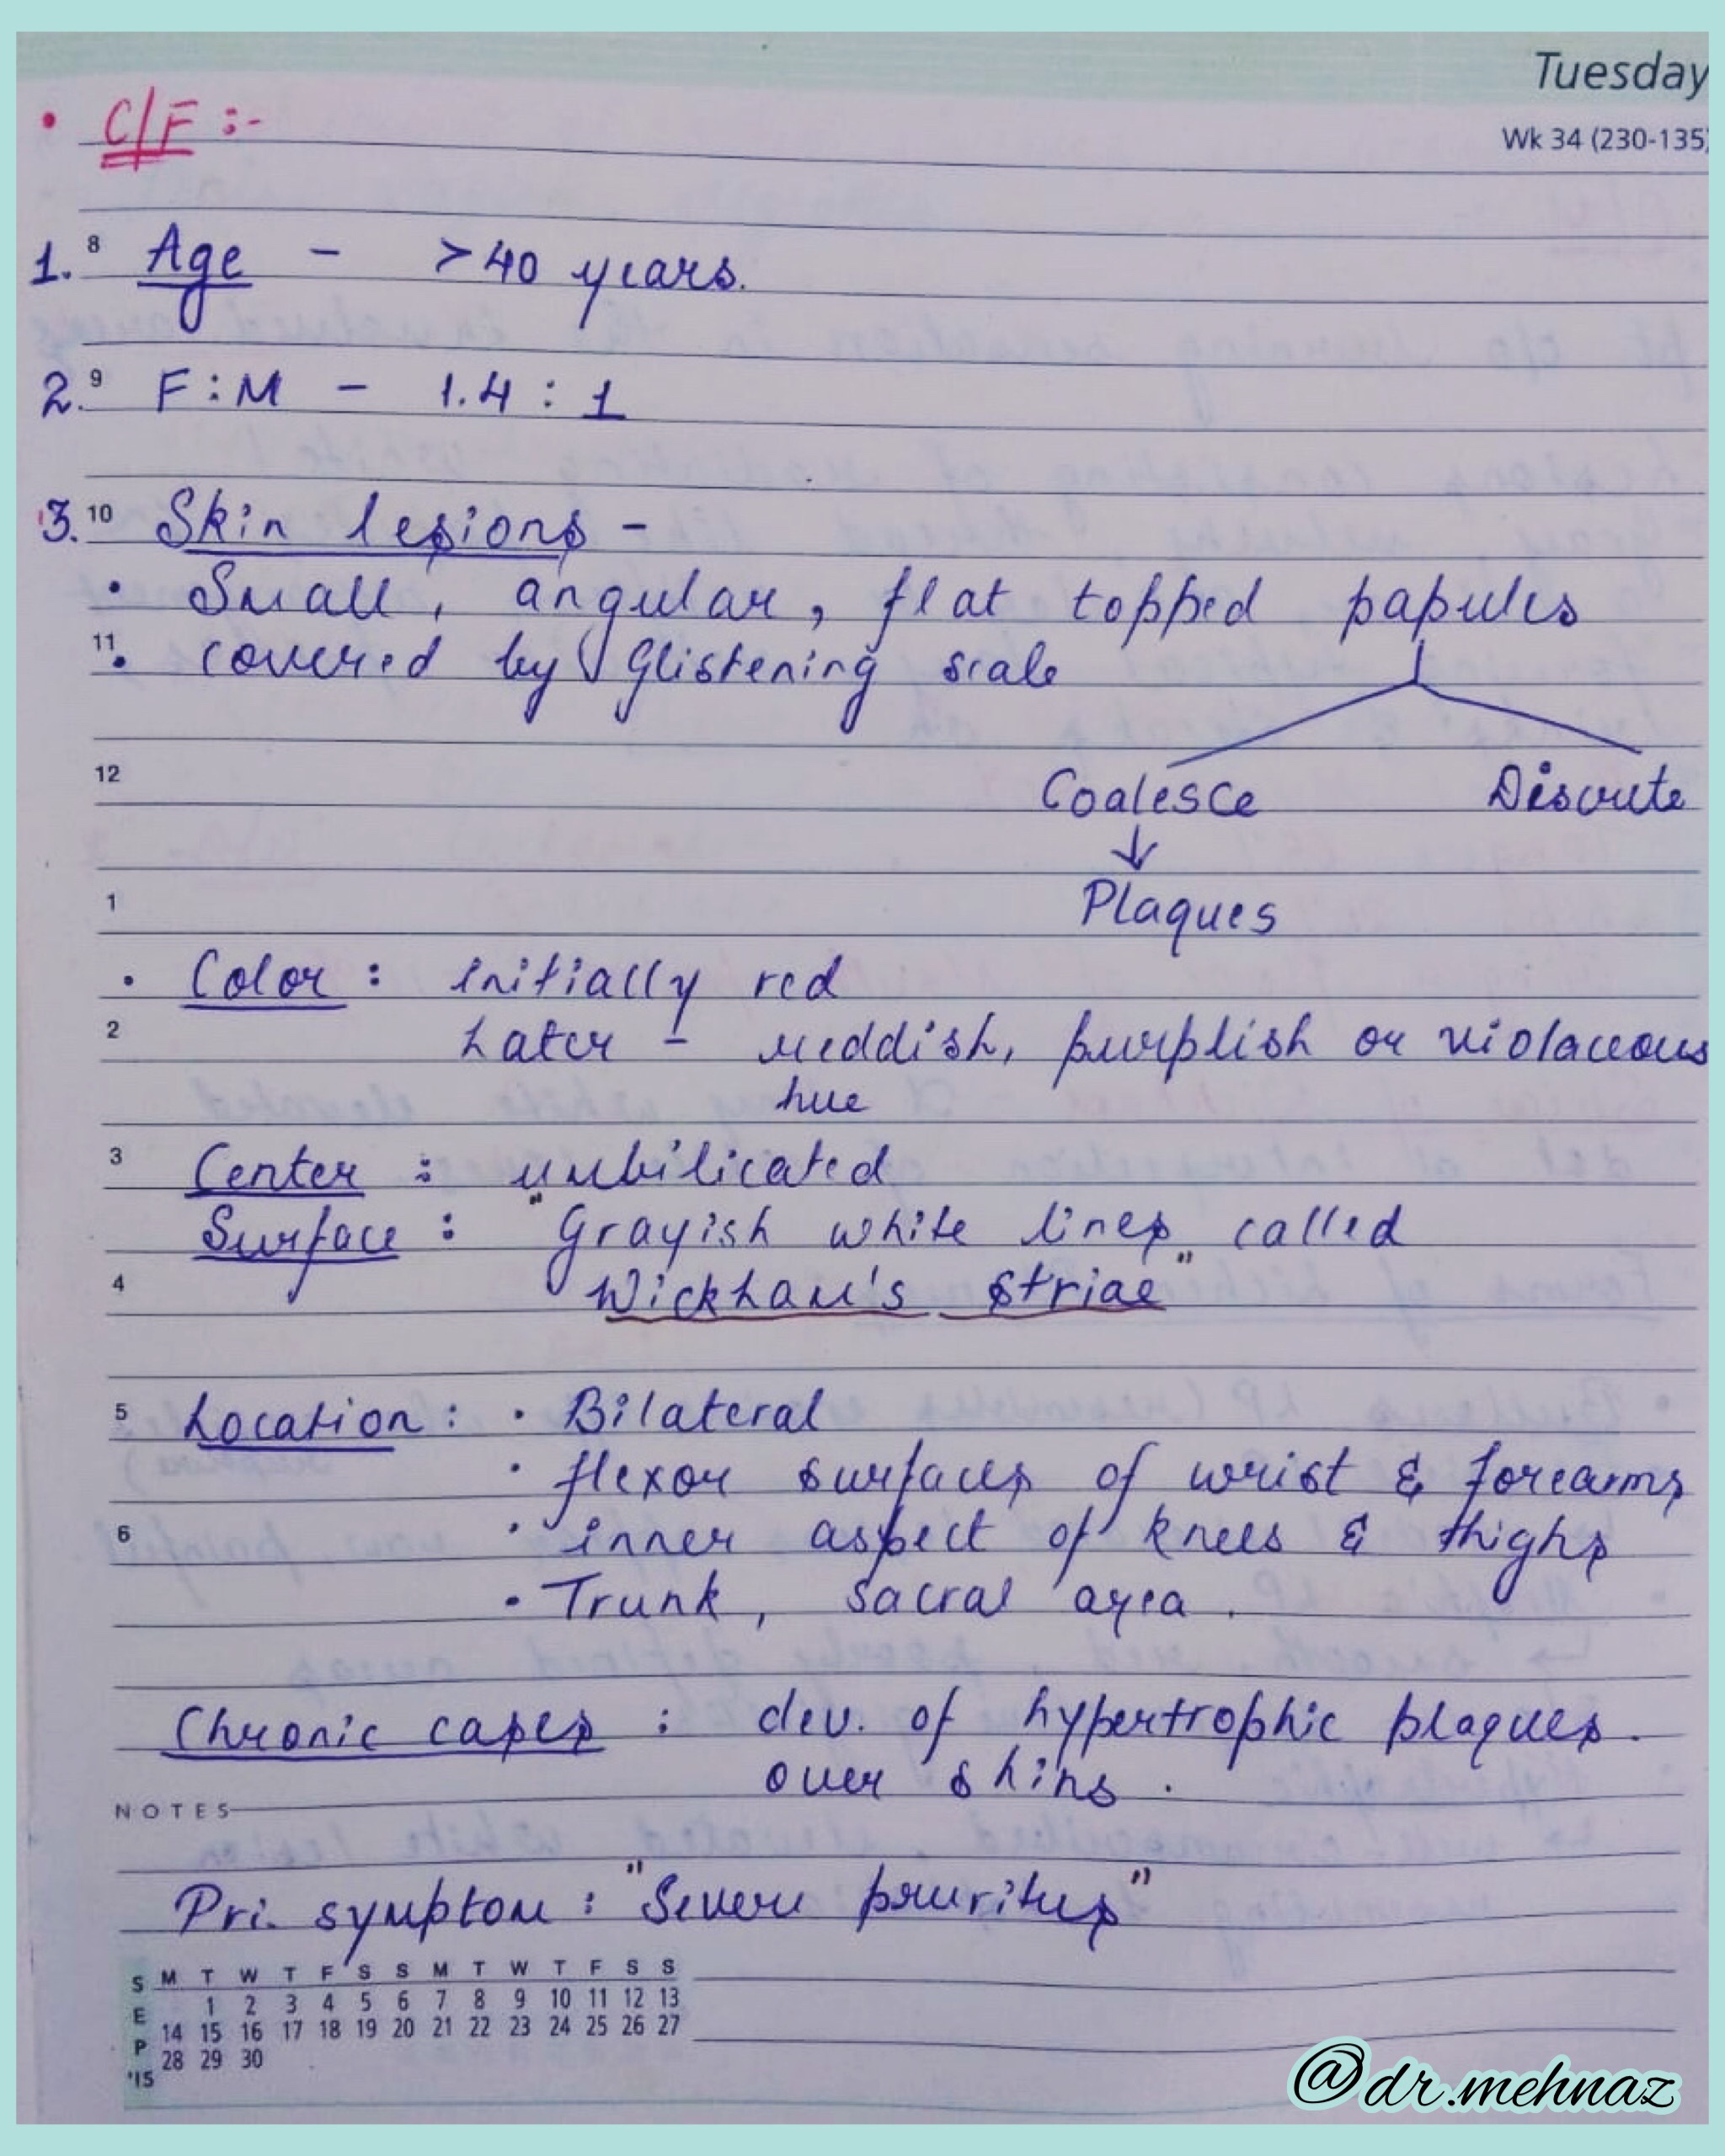 Tuesday
Wk 34 (230-135)
• C/F :-
1. 8 Age - >40 years.
2. 9 F:M - 1.4 : 1
3. 10 Skin lesions -
• Small, angular, flat topped papules
11 • covered by Glistening scale
12 Coalesce Discrete
↓
1 Plaques
• Color : initially red
2 Later - reddish, purplish or violaceous
hue
3 Center : umbilicated
Surface : "Grayish white lines called
4 Wickham's striae"
5 Location : • Bilateral
• flexor surfaces of wrist & forearms
6 • inner aspect of knees & thighs
• Trunk, sacral area.
Chronic cases : dev. of hypertrophic plaques.
over shins.
NOTES
Pri. symptom : "Severe pruritus"
SEP '15
M T W T F S S M T W T F S S
1 2 3 4 5 6 7 8 9 10 11 12 13
14 15 16 17 18 19 20 21 22 23 24 25 26 27
28 29 30
@dr.mehnaz